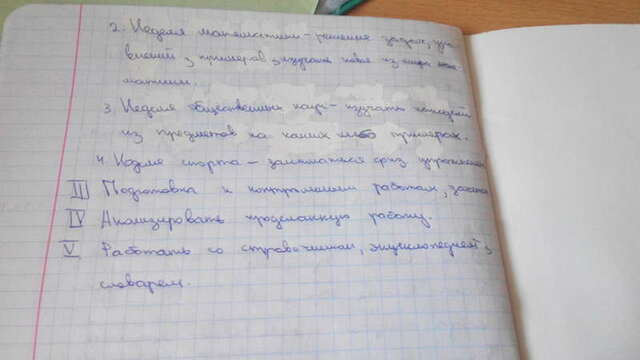 2. Неделя математики – решение задач, ура
внений з примеров з изучаем новое из мира мате
матики.
3. Неделя общественных наук – изучать каждый
из предметов на каких либо примерах.
4. Неделя спорта – заниматься физ. упражнения
III Подготовка к контрольным работам, зачётам
IV Анализировать проделанную работу.
V Работать со справочником, энциклопедией з
словарем.